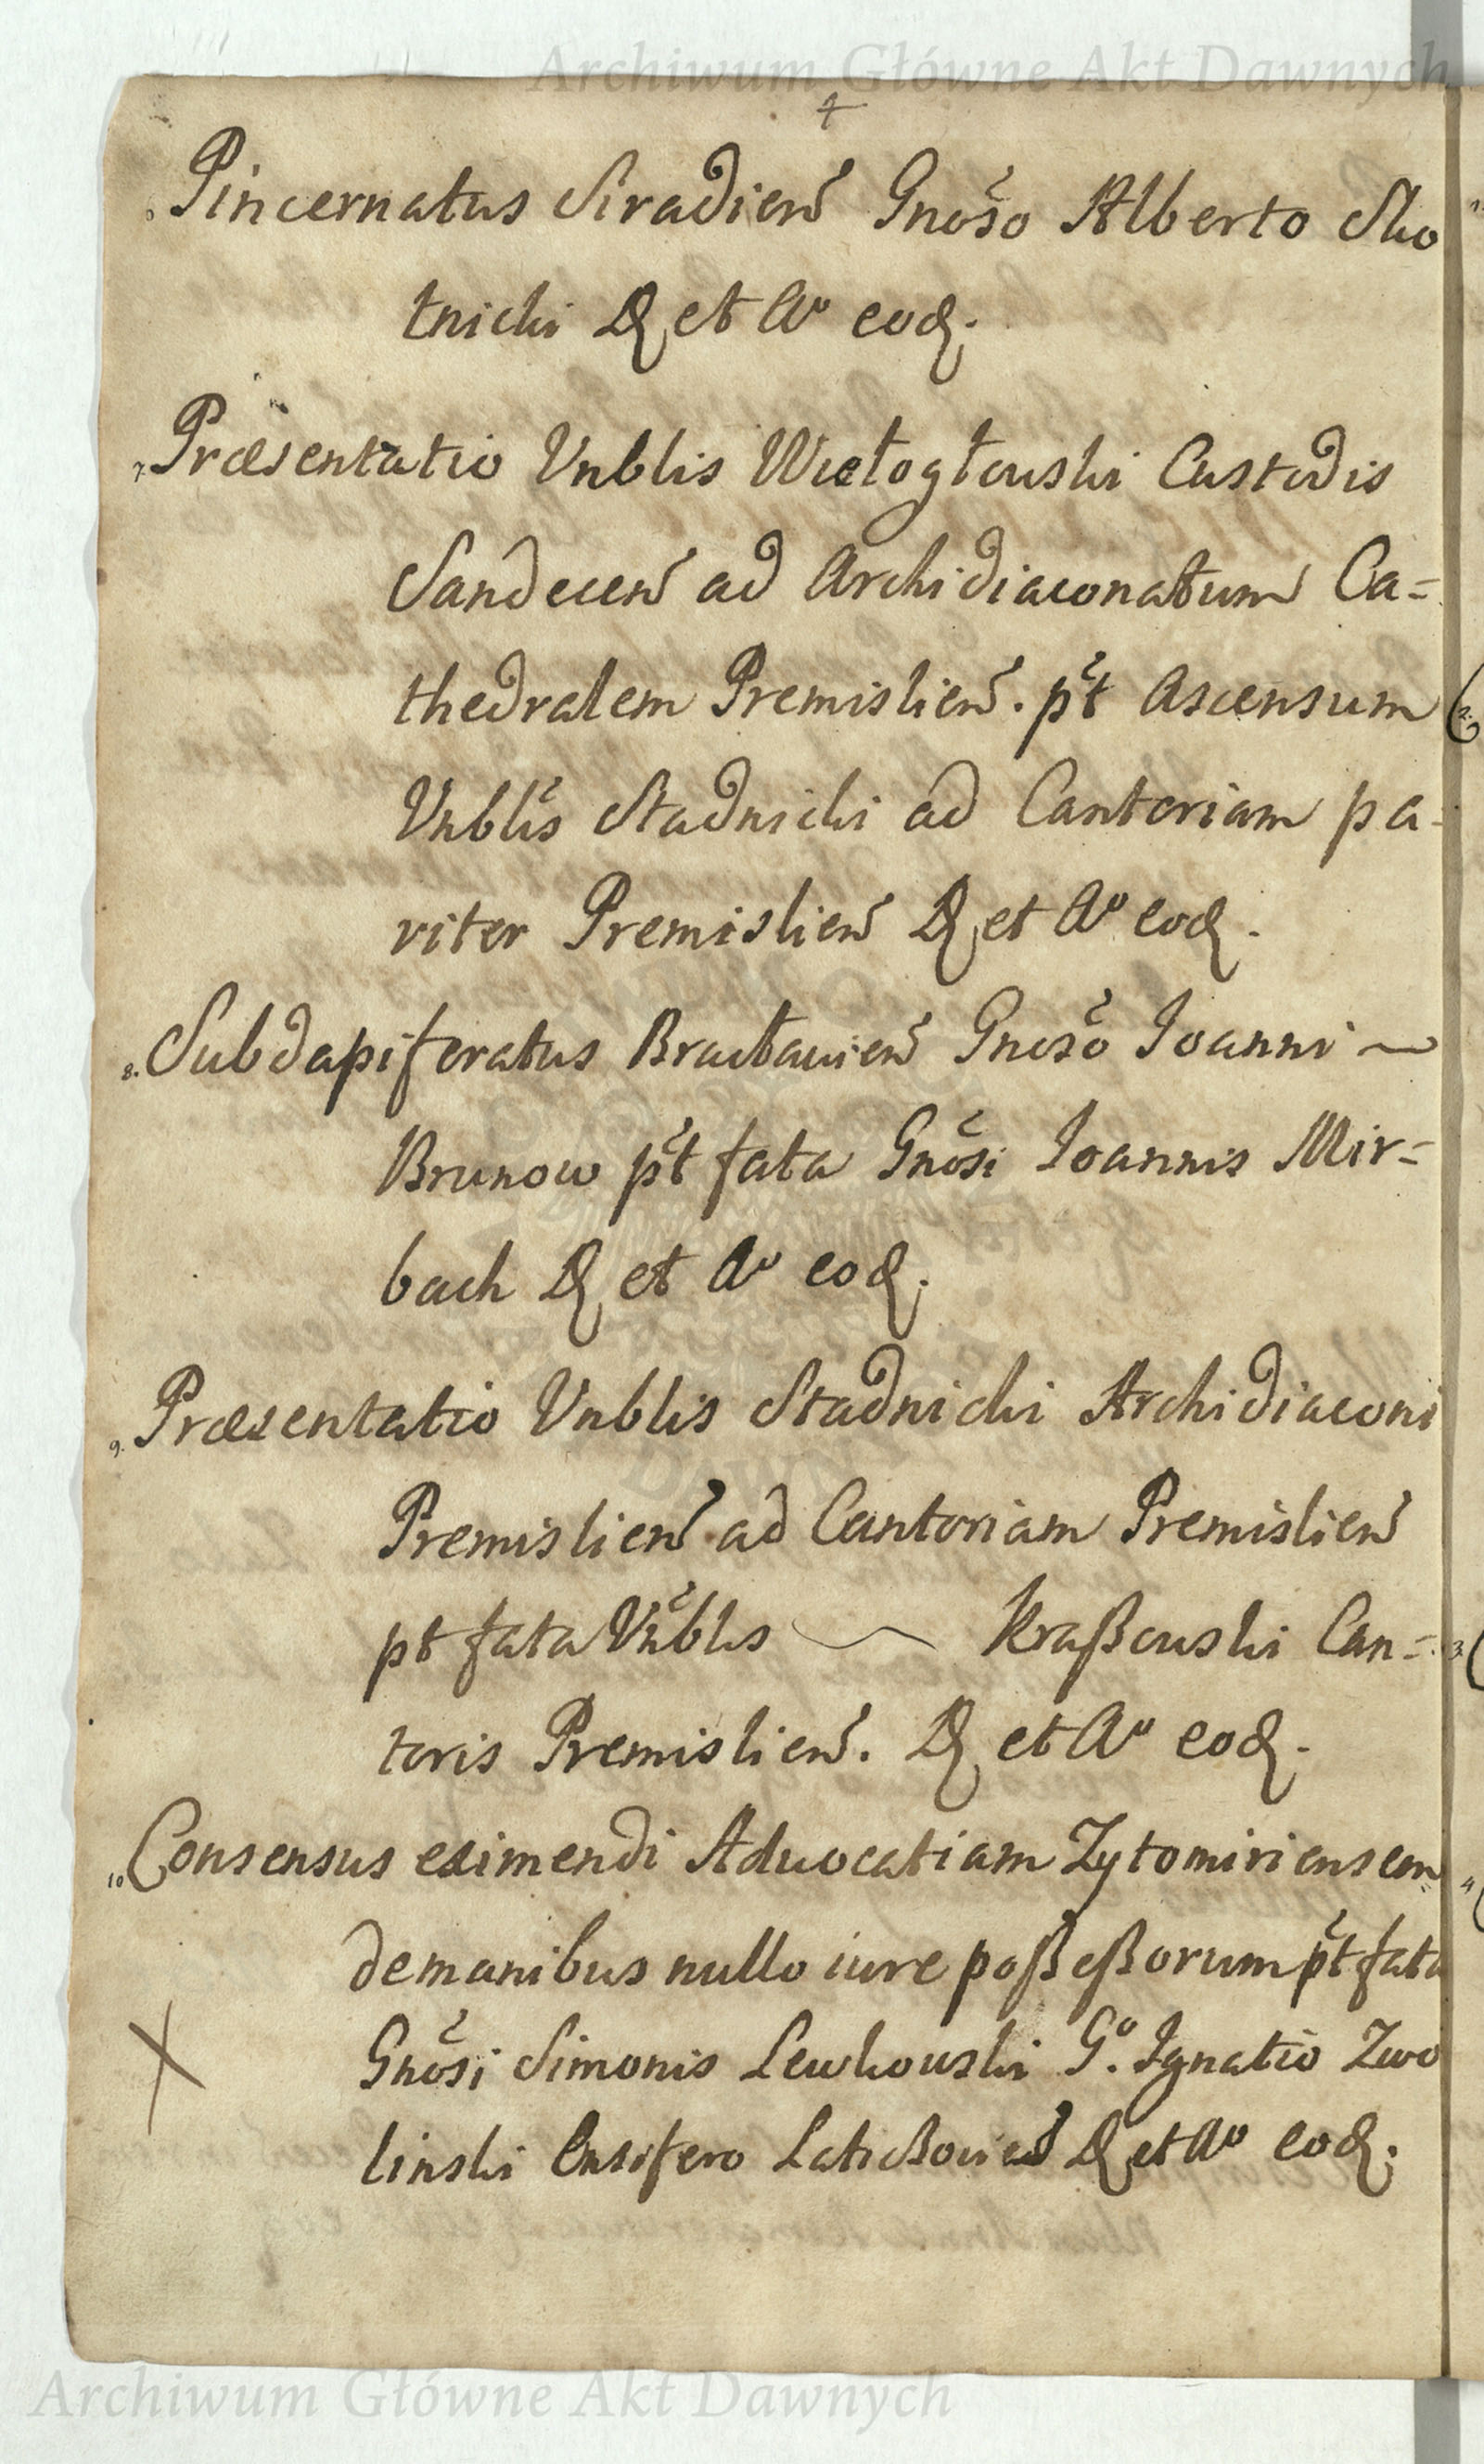 Archiwum Główne Akt Dawnych
4
Pincernatus Siradien̄ Gnōso Alberto Sko
tnicki D. et Aº eod.
7. Præsentatio Vnblis Wielogłowski Custodis
Sandecen̄ ad Archidiaconatum Ca=
thedralem Premislien̄. p̄t Ascensum
Vnblis̄ Stadnicki ad Cantoriam pa-
riter Premislien̄ D. et Aº eod.
8. Subdapiferatus Bracłavien̄ Gnosō Joanni ~
Brunow p̄t fata Gnōsi Joannis Mir=
bach D. et Aº eod.
9. Præsentatio Vnblis Stadnicki Archidiaconi
Premislien̄ ad Cantoriam Premislien̄
pt fata Vn̄blis ~ Kraßowski Can=
toris Premislien̄. D. et Aº eod.
10. Consensus eximendi Advocatiam Zytomiriensem
de manibus nullo iure poßeßorum p̄t fata
X Gnōsi Simonis Lewkowski Gº. Ignatio Zwo
linski Ensifero Laticzovien̄ D. et Aº eod.
Archiwum Główne Akt Dawnych